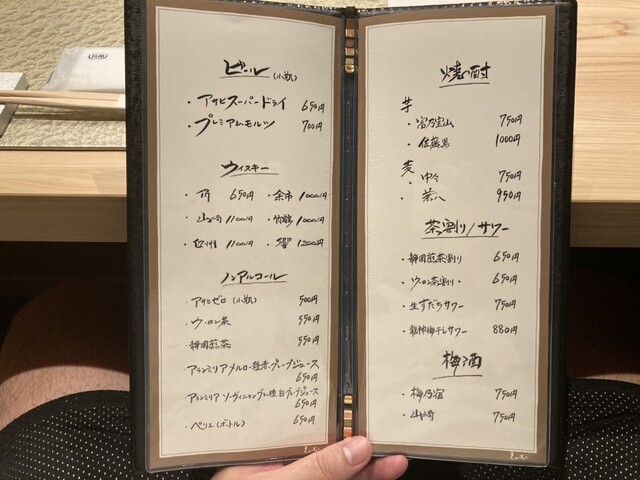 ビール(小瓶)
・アサヒスーパードライ 650円
・プレミアムモルツ 700円
ウィスキー
・角 650円 ・余市 1000円
・山崎 1100円 ・竹鶴 1000円
・白州 1100円 ・響 1200円
ノンアルコール
・アサヒゼロ(小瓶) 500円
・ウーロン茶 550円
・静岡煎茶 550円
・アランミリアメルロ・種赤グレープジュース
650円
・アランミリアソーヴィニヨンブラン種白グレープジュース
650円
・ペリエ(ボトル) 650円
焼酎
芋
・富乃宝山 750円
・佐藤黒 1000円
麦
・中々 750円
・茶八 950円
茶割り/サワー
・静岡煎茶割り 650円
・ウーロン茶割り・ 650円
・生すだちサワー 750円
・龍神梅干しサワー 880円
梅酒
・梅乃宿 750円
・山崎 750円